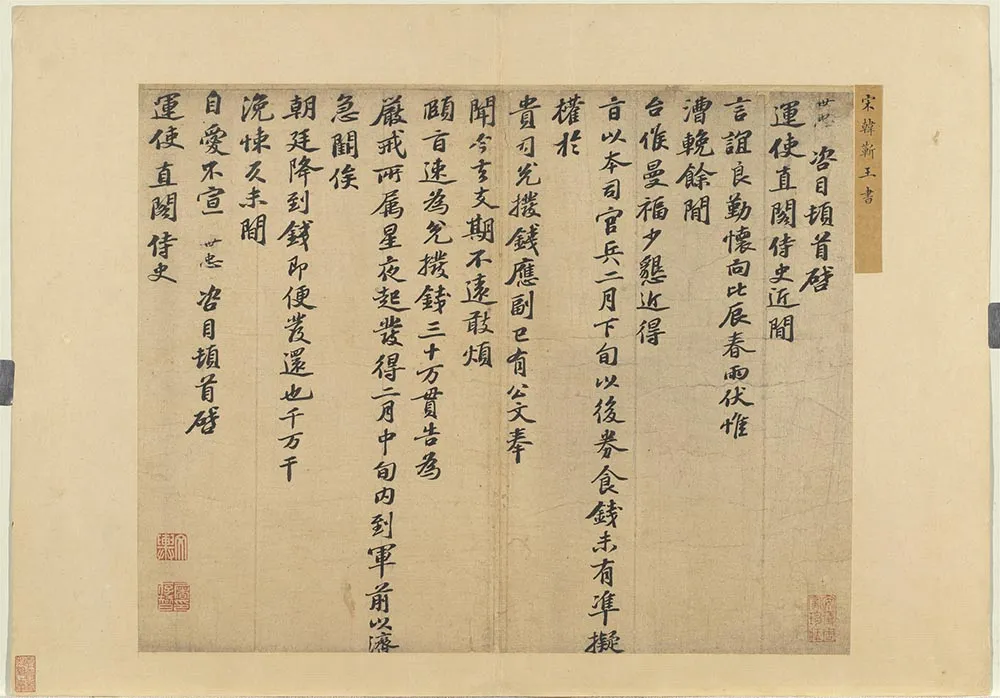 宋韓蘄王書
世忠 咨目頓首啓
運使直閣侍史近聞
言誼良勤懷向比辰春雨伏惟
漕輓餘間
台候曼福少懇近得
旨以本司官兵二月下旬以後券食錢未有準擬
權於
貴司兌撥錢應副已有公文奉
聞今去支期不遠敢煩
頤旨速為兌撥錢三十万貫告為
嚴戒所属星夜起發得二月中旬內到軍前以濟
急闕俟
朝廷降到錢即便發還也千万千
浼悚久未間
自愛不宣 世忠 咨目頓首啓
運使直閣侍史